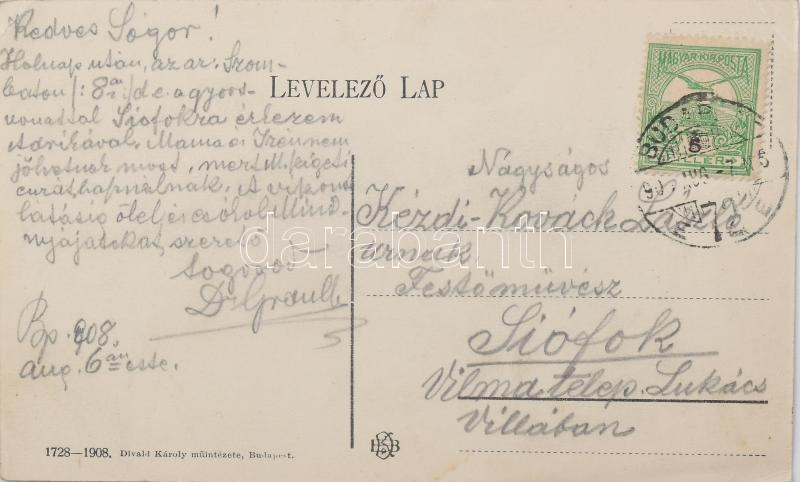 Kedves Sógor!
Holnap után, azaz: Szom-
baton /: 8 án :/ d.e. a gyors-
vonattal Siófokra érkezem
Adrikával. Mama és Irén nem
jöhetnek most, mert Margitszigeti
curát használnak. A viszont
látásig ölel és csókol Mind-
nyájatokat szerető
sógorod
Dr Graull
Bp. 908.
aug. 6 án este.
LEVELEZŐ LAP
MAGYAR KIR. POSTA
BUDAPEST
Nagyságos
Kézdi-Kovách László
úrnak
Festőművész
Siófok
Vilma telep. Lukács
Villában
1728—1908. Divald Károly műintézete, Budapest.
darabanth